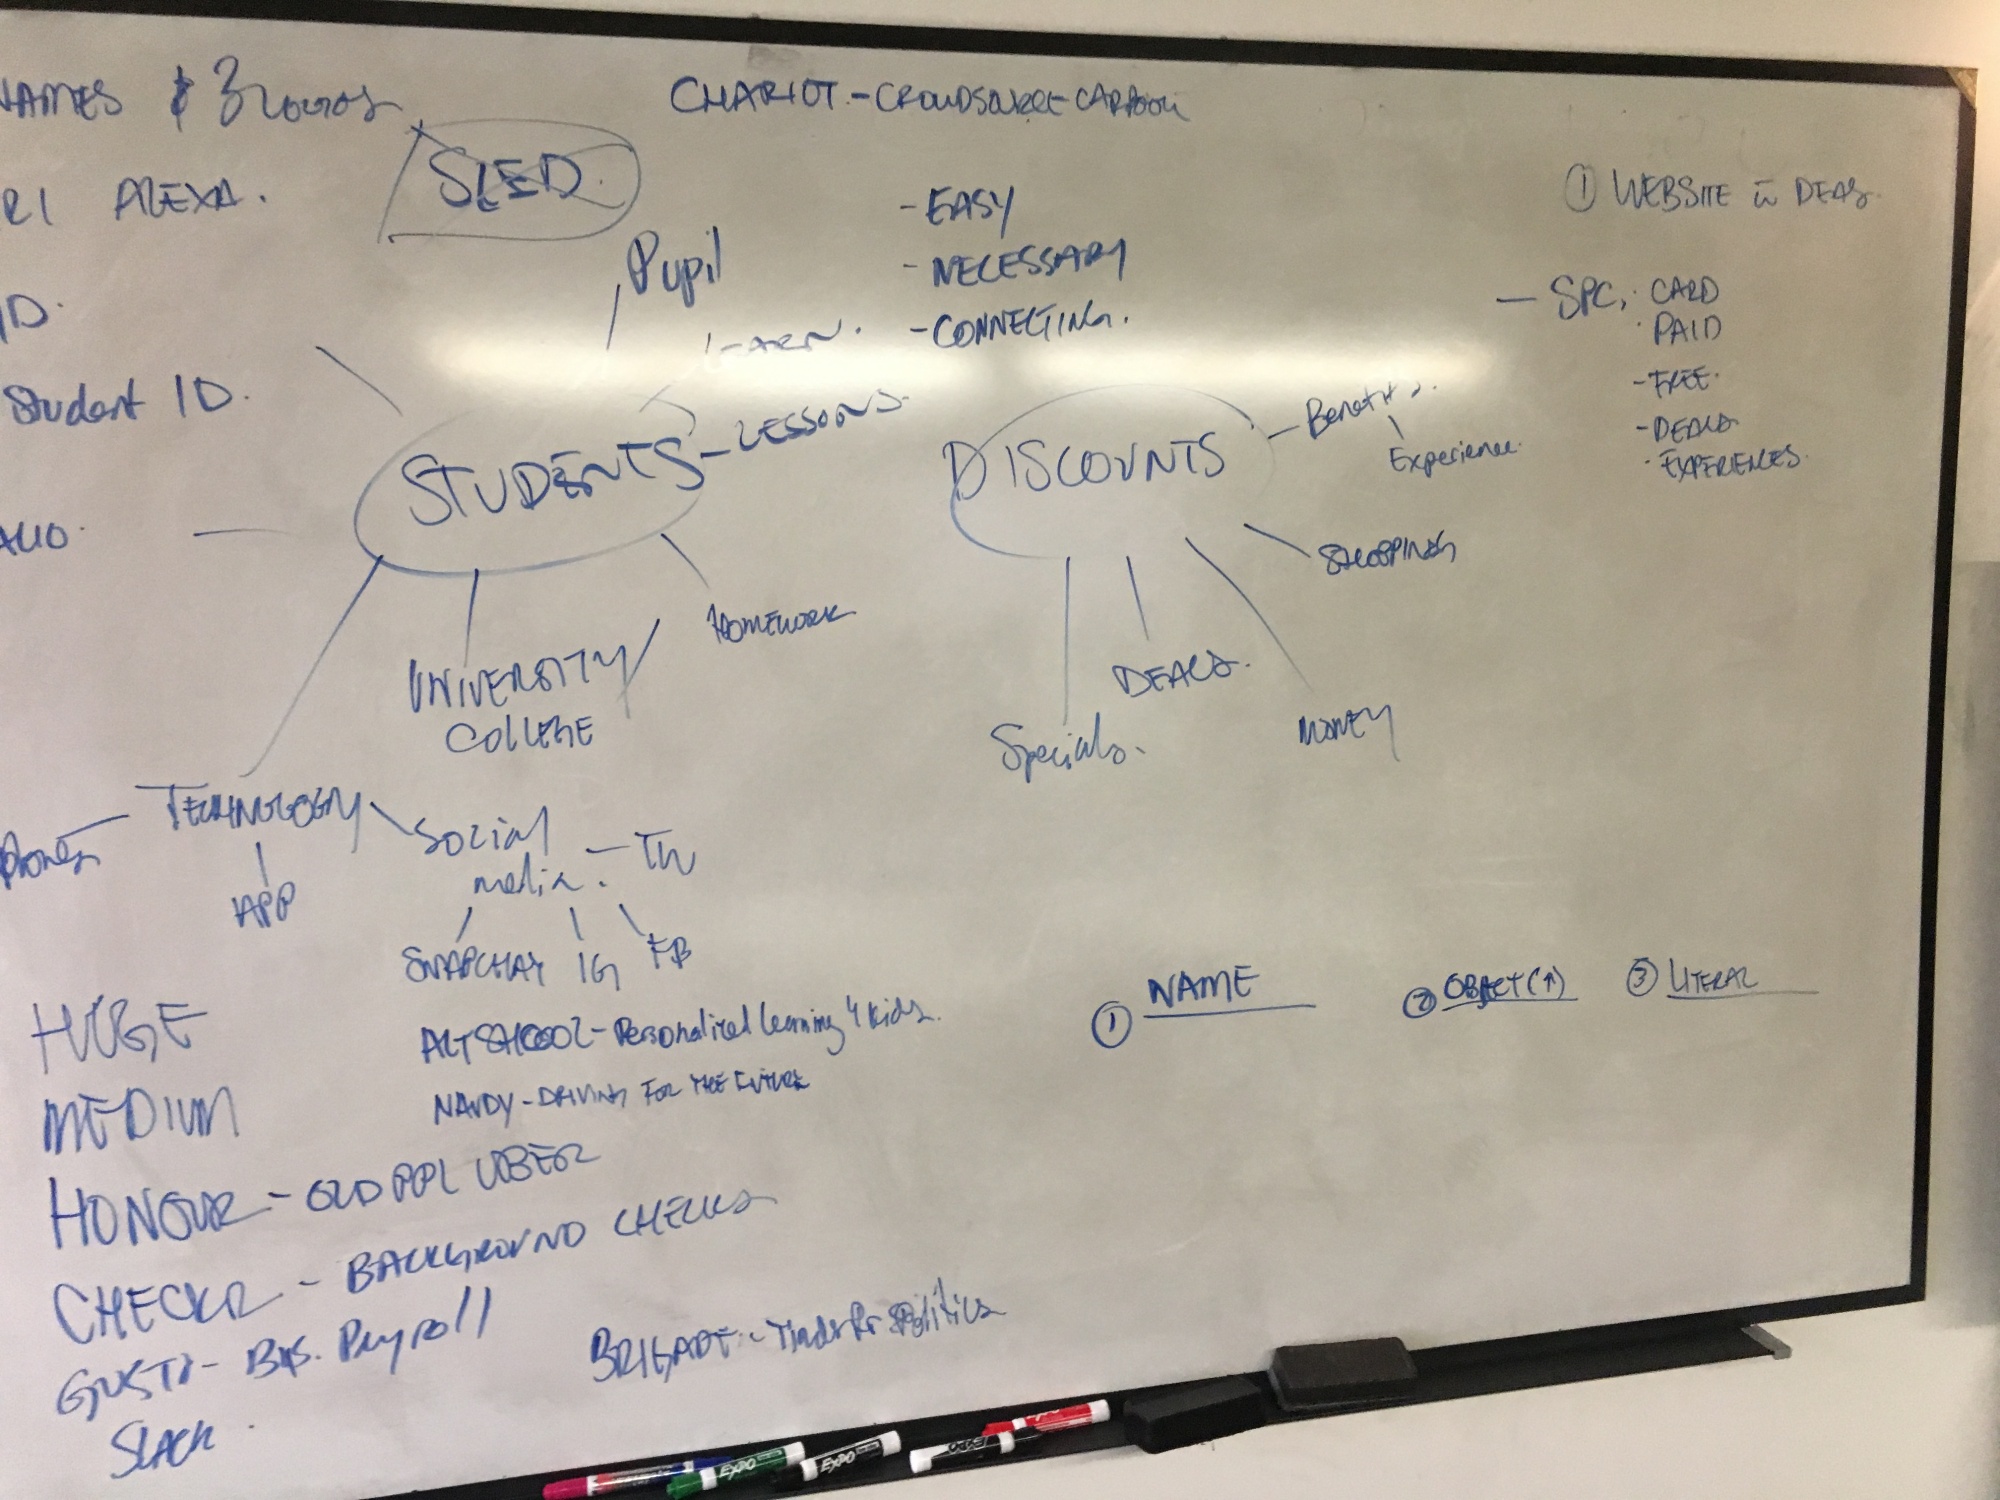 NAMES & 3 LOGOS
CHARIOT - CROWDSOURCE CARPOOL
SLED.
RI ALEXA.
① WEBSITE w̄ DEALS.
- EASY
- NECESSARY
- CONNECTING.
Pupil
LEARN.
- SPC, · CARD
· PAID
- FREE.
- DEALS
· EXPERIENCES.
ID.
Student ID.
STUDENTS - LESSONS.
DISCOUNTS
- Benefits.
Experience.
SHOPPING
HOMEWORK
UNIVERSITY/
COLLEGE
DEALS.
Specials.
MONEY
TECHNOLOGY
Phones
APP
Social
media. - TW
SNAPCHAT IG FB
① NAME ② OBJECT(↑) ③ LITERAL
HUGE
ALTSHCOOL - Personalized learning 4 kids.
MEDIUM
NAUDY - DRIVING FOR THE FUTURE
HONOUR - OLD PPL UBER
CHECKR - BACKGROUND CHECKS
GUSTO - BUS. Payroll
BRIGADE - Tinder for Politics
SLACK.
EXPO
EXPO
EXPO